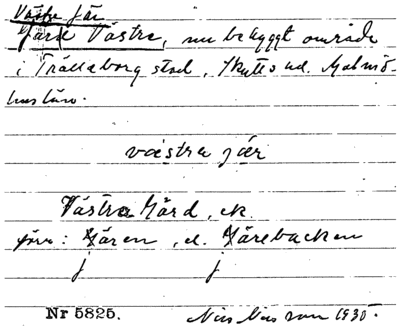 Västra Jär
Järd Västra, nu bebyggt område
i Trälleborg stad, Skytts hd. Malmö-
hus län.
västra jär
Västra Gärd, ek.
förr: Jären, el. Järebacken
j j
Nr 5825. Nils Nilsson 1930.